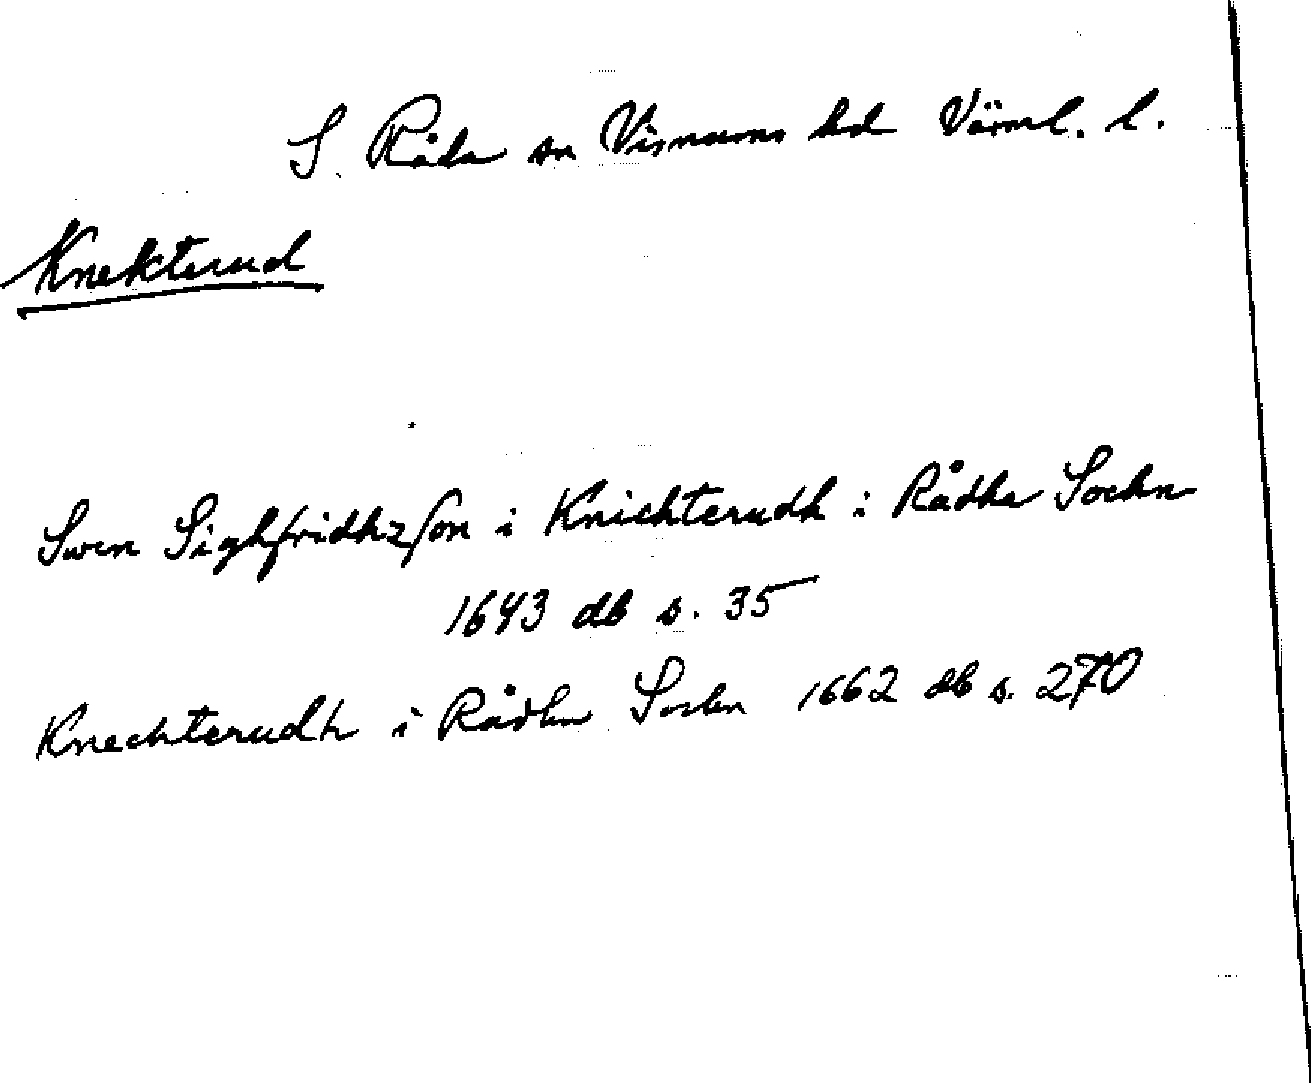 S. Råda sn Visnums hd Värml. l.
Knekterud
Swen Sighfridhzson i Knichterudh i Rådha Sochn
1643 db s. 35
Knechterudh i Rådha Sochn 1662 db s. 270